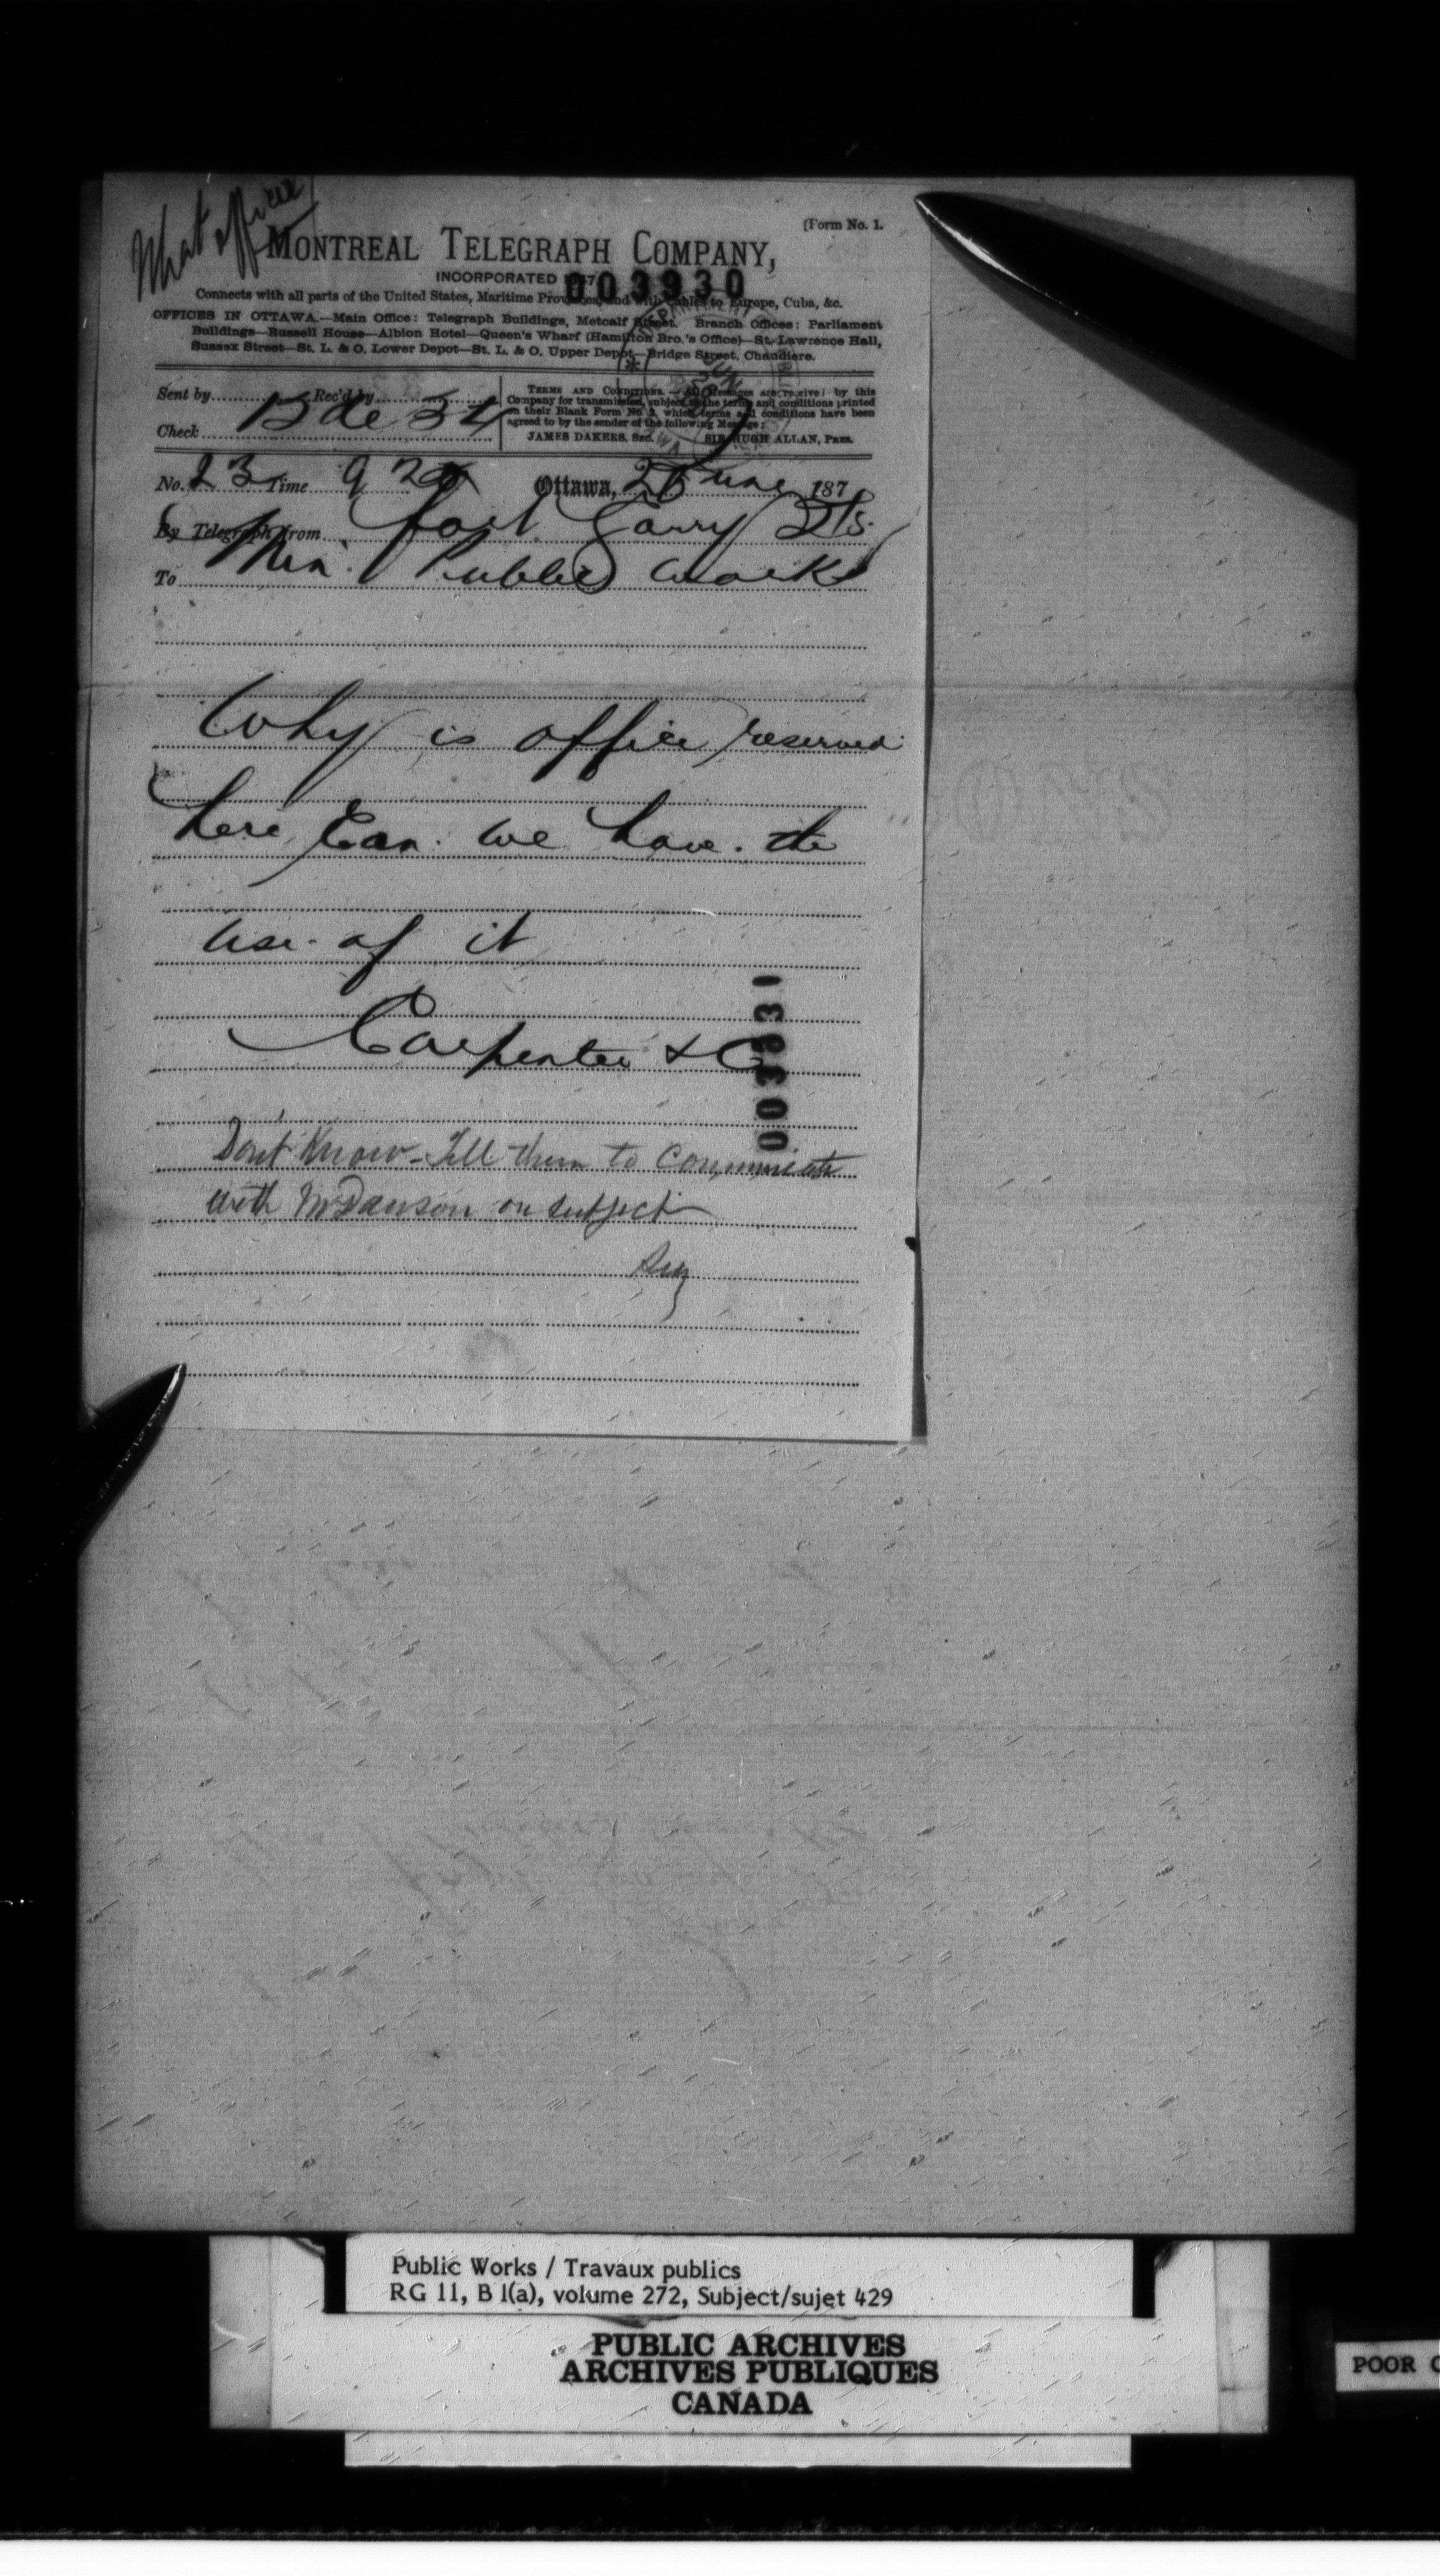 What office
(Form No. 1.
MONTREAL TELEGRAPH COMPANY,
INCORPORATED
003930
Connects with all parts of the United States, Maritime Provinces, and with Cables to Europe, Cuba, &c.
OFFICES IN OTTAWA.—Main Office: Telegraph Buildings, Metcalf Street. Branch Offices: Parliament
Buildings—Russell House—Albion Hotel—Queen's Wharf (Hamilton Bro.'s Office)—St. Lawrence Hall,
Sussex Street—St. L. & O. Lower Depot—St. L. & O. Upper Depot—Bridge Street, Chaudiere.
Sent by Rec'd by
Check
TERMS AND CONDITIONS.—All Messages are received by this
Company for transmission, subject to the terms and conditions printed
on their Blank Form No. 2, which terms and conditions have been
agreed to by the sender of the following Message:
JAMES DAKERS, Sec. SIR HUGH ALLAN, Pres.
No. 23 Time 9 Ottawa, June 187
By Telegraph from Fort Garry
To Min. Public Works
Why is office reserved
here Can we have the
use of it
Carpenter & Co
003931
Don't Know - Tell them to communicate
with Mr Dawson on subject
Public Works / Travaux publics
RG 11, B 1(a), volume 272, Subject/sujet 429
PUBLIC ARCHIVES
ARCHIVES PUBLIQUES
CANADA
POOR